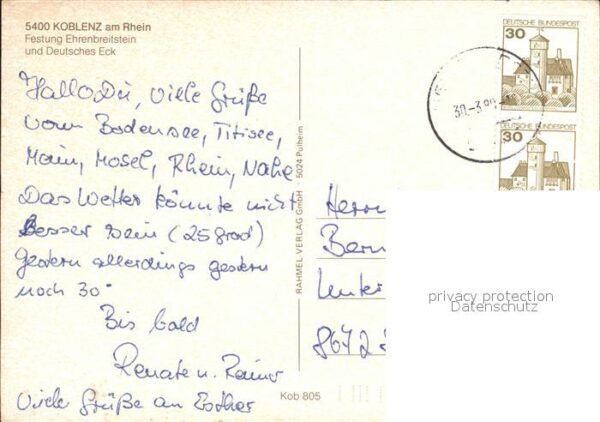 5400 KOBLENZ am Rhein
Festung Ehrenbreitstein
und Deutsches Eck
Hallo Du, viele Grüße
vom Bodensee, Titisee,
Main, Mosel, Rhein, Nahe
Das Wetter könnte nicht
Besser sein (25 grad)
gestern allerdings gestern
noch 30°
Bis bald
Renate u. Rainer
Viele Grüße an Esther
Kob 805
RAHMEL VERLAG GmbH · 5024 Pulheim
DEUTSCHE BUNDESPOST
30
DEUTSCHE BUNDESPOST
30
Herrn
Bern
Unter
8672
privacy protection
Datenschutz